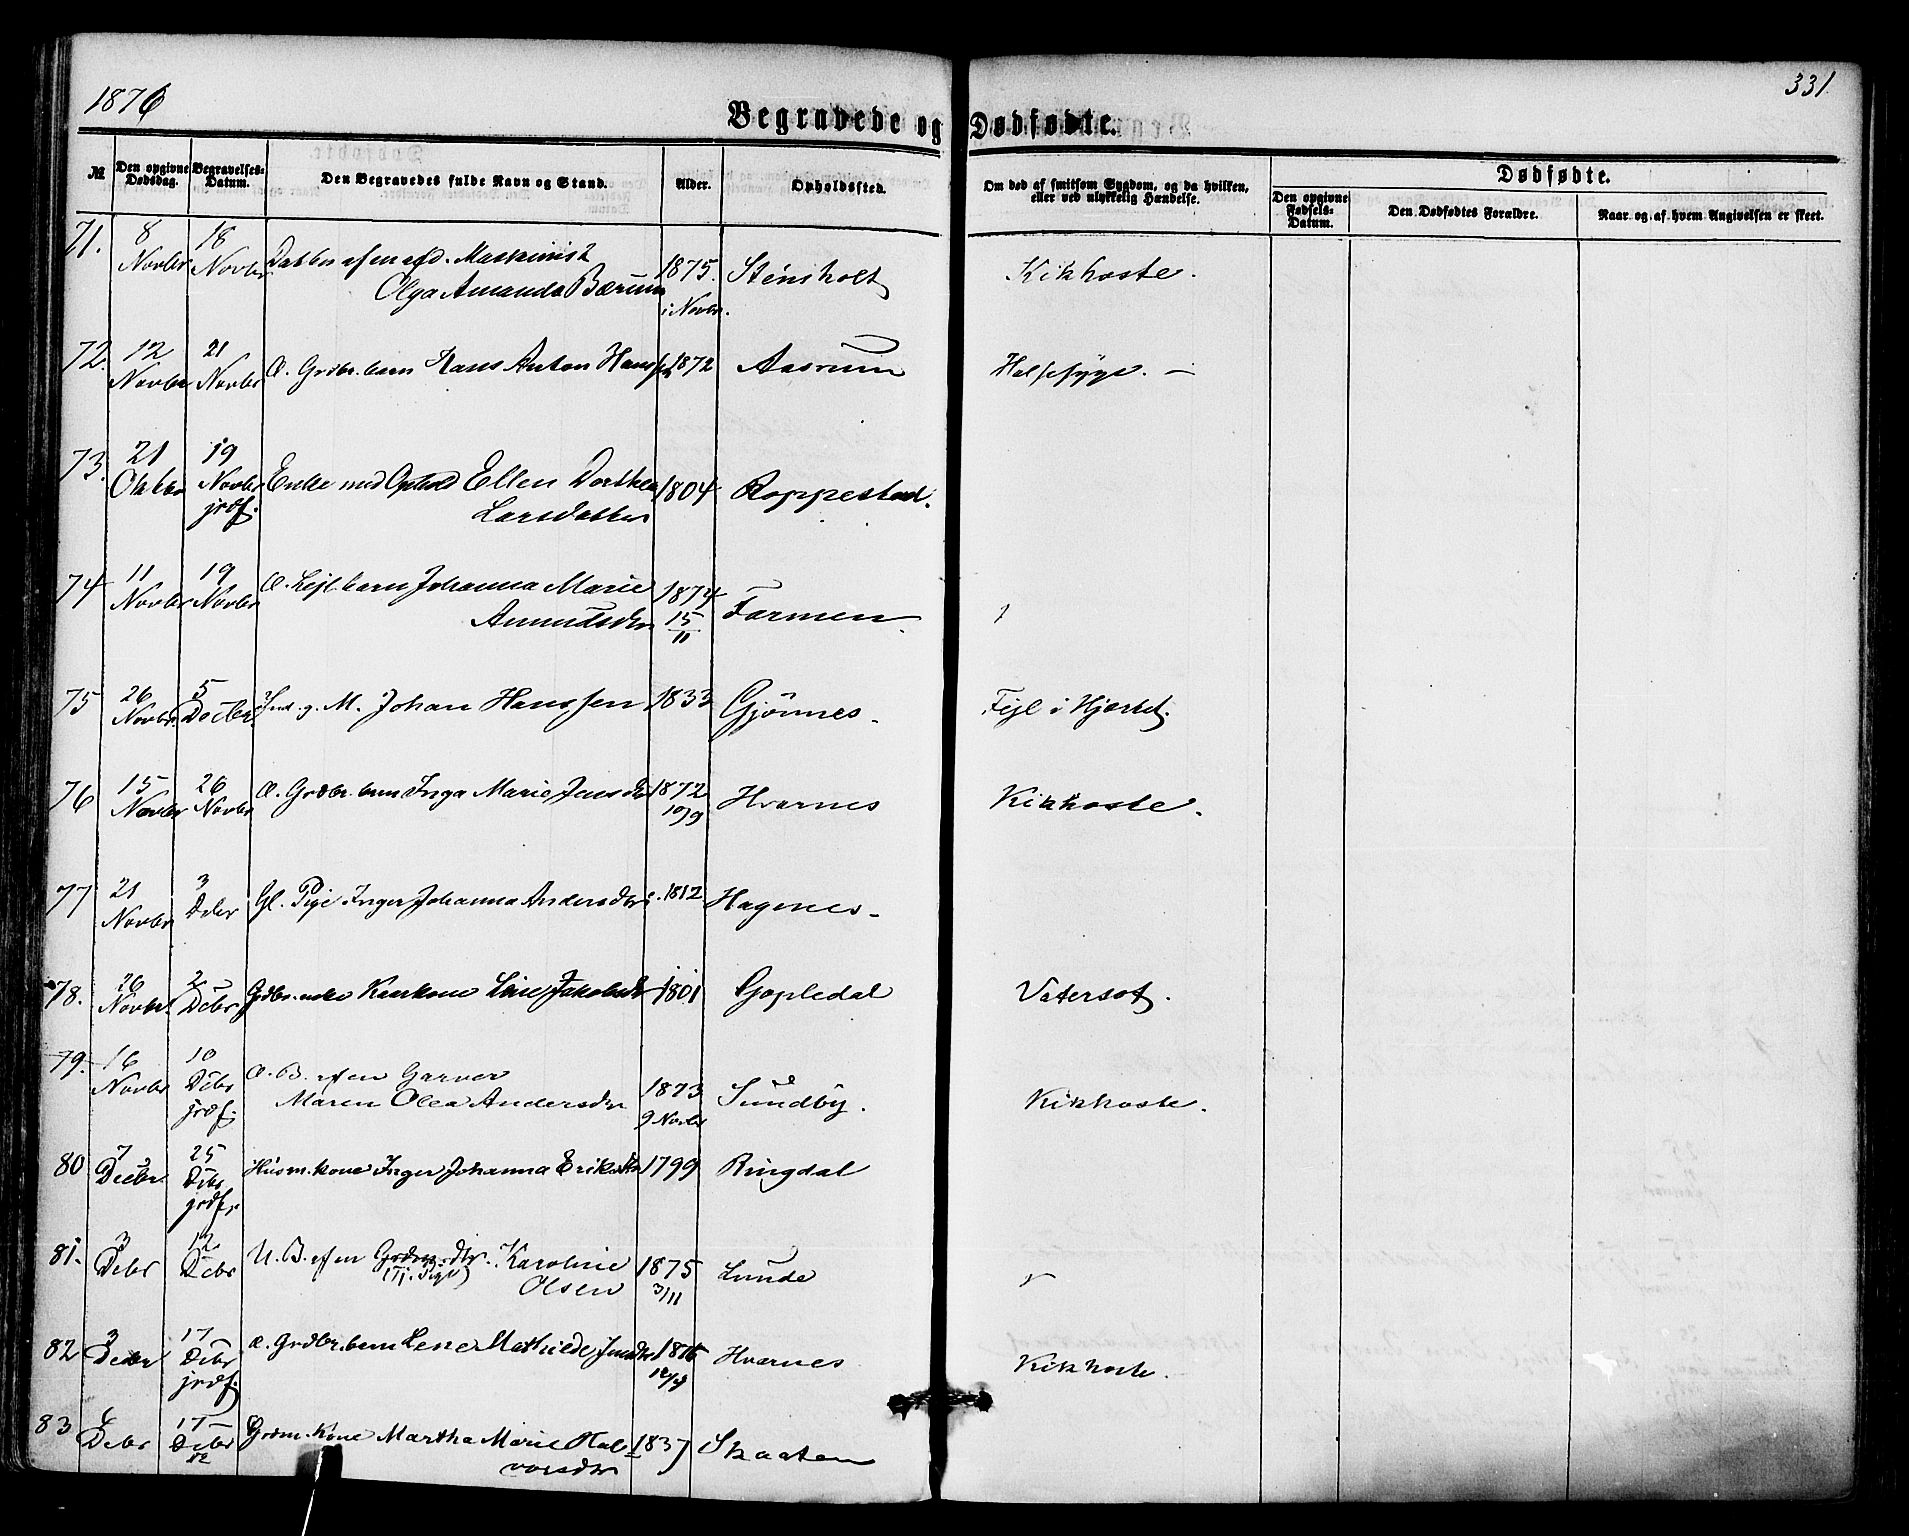 1876
331
Begravede og Dødfødte.
№
Den opgivne Dødsdag.
Begravelses-Datum.
Den Begravedes fulde Navn og Stand.
Alder.
Opholdssted.
Om død af smitsom Sygdom, og da hvilken, eller ved ulykkelig Hændelse.
Dødfødte.
Den opgivne Fødsels-Datum.
Den Dødfødtes Forældre.
Naar og af hvem Angivelsen er skeet.
71. 8 Novbr 18 Novbr Datter af en Maskinist
Olga Amanda Bærum 1875. i Novbr. Stensholt Kikhoste.
72. 12 Novbr 21 Novbr Æ. Grdbr. barn Hans Anton Hanssen 1872 Aasrum Halssyge. —
73. 21 Oktbr 19 Novbr jrdf. Enke med Ophold Ellen Dorthea
Larsdatter 1804 Roppestad.
74 11 Novbr 19 Novbr Æ. Lejl. barn Johanna Marie
Amundsdtr 1874 15/11 Farmen.
75 26 Novbr 5 Decbr Ind. g. M. Johan Hanssen 1833 Gjønnes. Fejl i Hjertet.
76 15 Novbr 26 Novbr Æ. Grdbr. barn Inga Marie Jensdtr 1872 10/9 Hvarnes Kikhoste.
77 21 Novbr 3 Debr Gl. Pige Inger Johanna Andersdtr 1812 Hagenes.
78. 26 Novbr 2 Debr Grdbr. enke Lise Jakobsdtr 1801 Gopledal Vatersot.
79. 16 Novbr 10 Debr jrdf. Æ. B. af en Garver
Maren Olea Andersdtr 1873 9 Novbr Sundby. Kikhoste.
80 7 Decbr 25 Debr jrdf. Husm. kone Inger Johanna Eriksdtr 1799 Ringdal
81. 3 Debr 12 Debr U. B. af en Karoline
(Tj. Pige)
Olsen 1875 3/11 Lunde
82 3 Debr 17 Debr jrdf. Æ. Grdbr. barn Lene Mathilde Jensdtr Hvarnes Kikhoste.
83 6 Debr 17 Debr Grdm. Kone Martha Marie Hal-
vorsdtr 1837 Skaaten